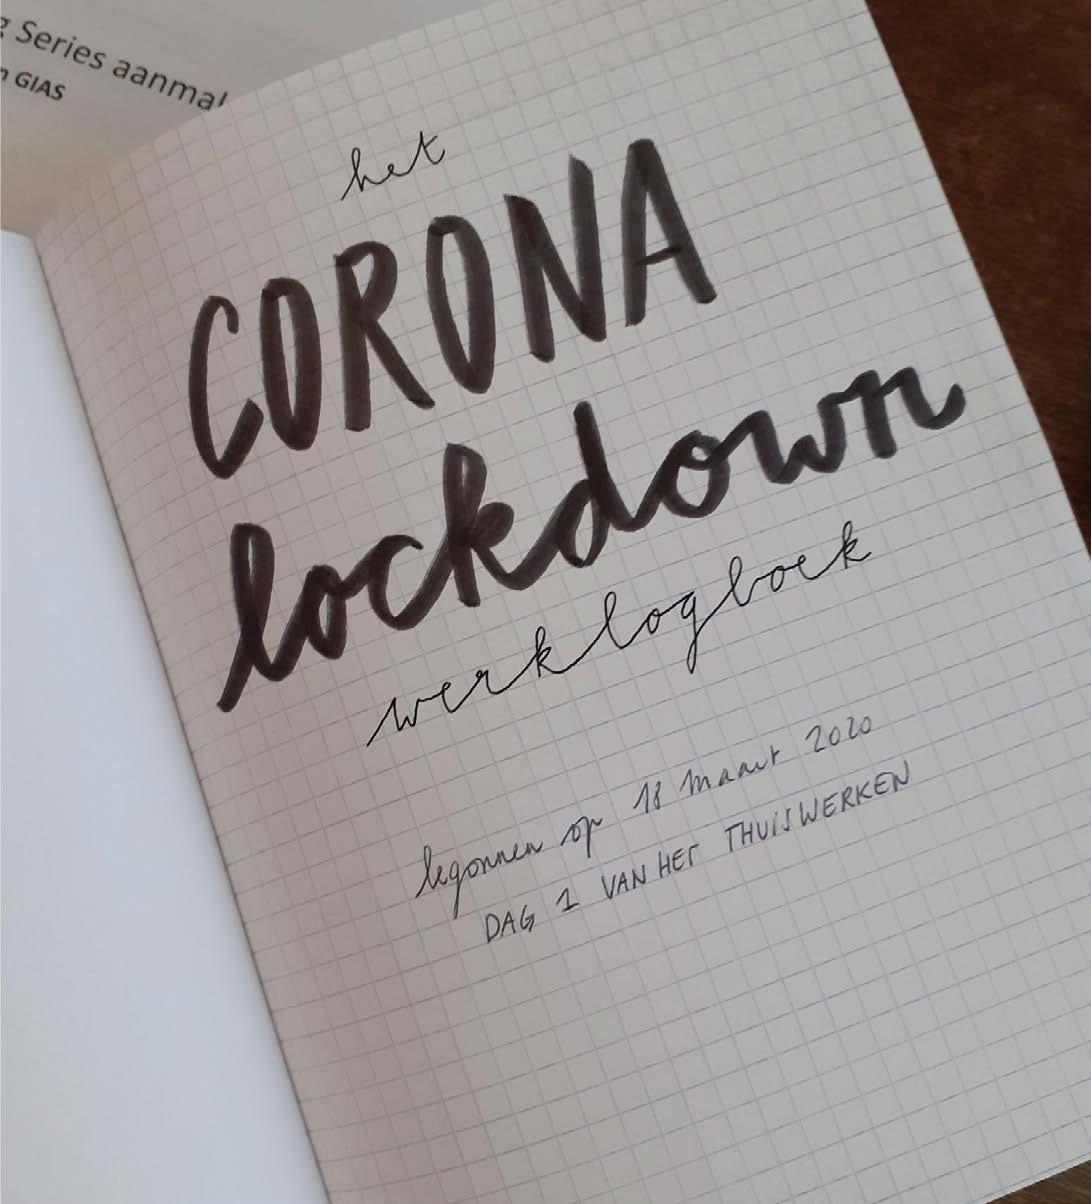 Series aanma
GIAS
het
CORONA
lockdown
werklogboek
begonnen op 18 maart 2020
DAG 1 VAN HET THUISWERKEN